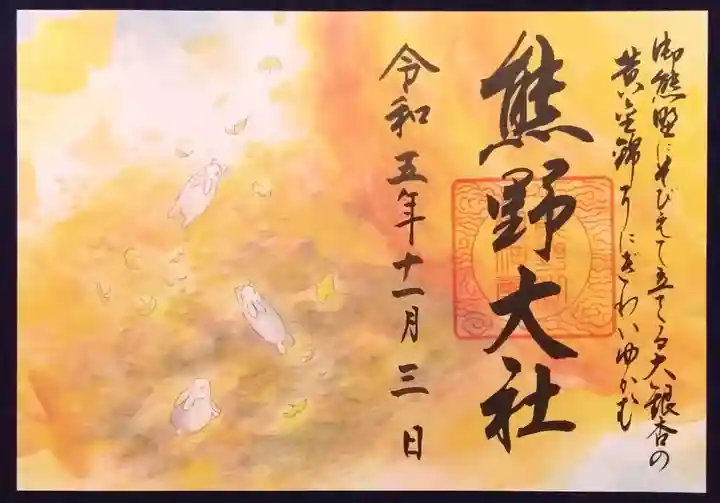 御熊野にそびえて立てる大銀杏の
黄金錦りにぎわいゆかむ
熊野大社
令和五年十一月三日